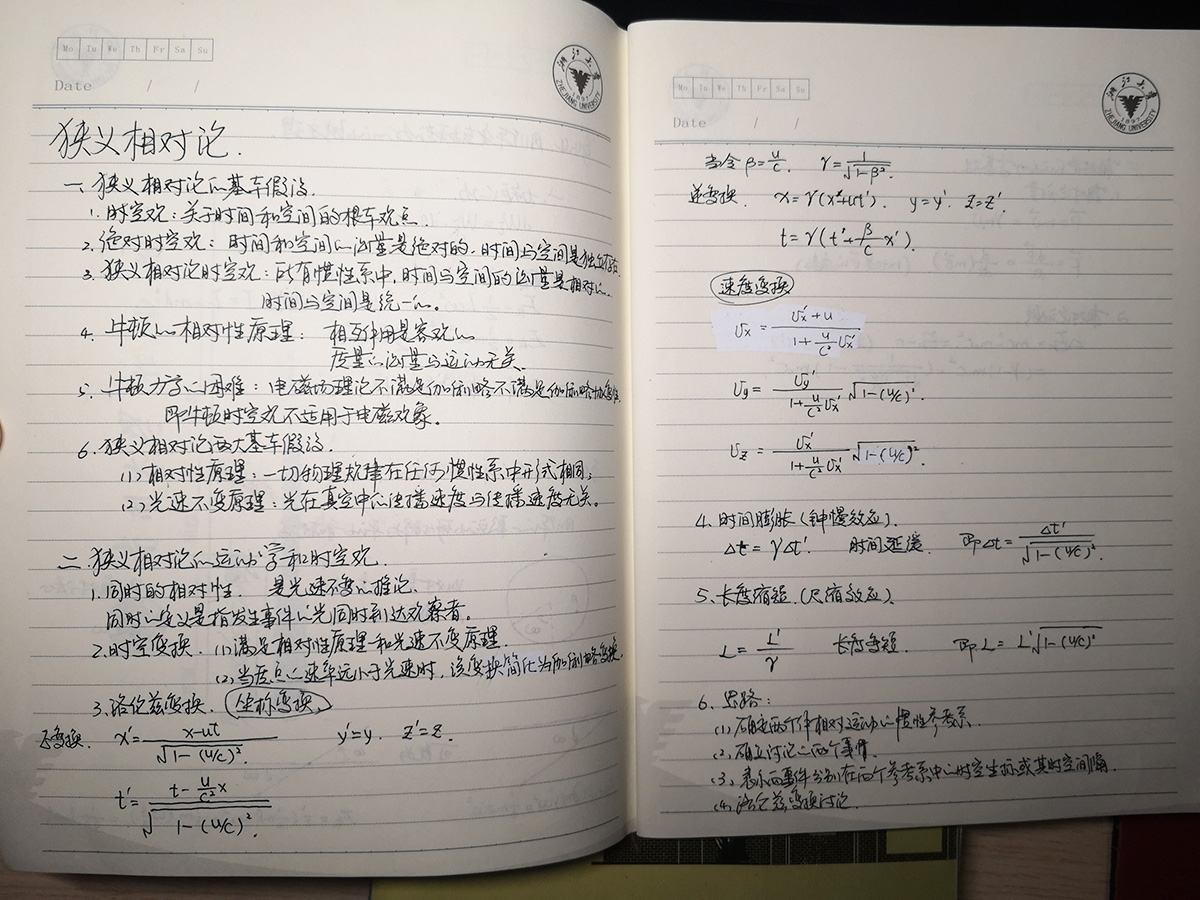 Mo Tu We Th Fr Sa Su
Date / /
浙江大学
1897
ZHEJIANG UNIVERSITY
狭义相对论.
一、狭义相对论的基本假设.
1. 时空观：关于时间和空间的根本观点.
2. 绝对时空观：时间和空间的测量是绝对的，时间与空间是独立存在
3. 狭义相对论时空观：所有惯性系中，时间与空间的测量是相对的.
时间与空间是统一的.
4. 牛顿的相对性原理：相互作用是客观的
度量的测量与运动无关.
5. 牛顿力学的困难：电磁场理论不满足伽利略不满足伽利略协变性.
即牛顿时空观不适用于电磁现象。
6. 狭义相对论两大基本假设.
(1) 相对性原理：一切物理规律在任何惯性系中形式相同；
(2) 光速不变原理：光在真空中的传播速度与传播速度无关。
二、狭义相对论的运动学和时空观.
1. 同时的相对性. 是光速不变的推论.
同时的定义是指发生事件的光同时到达观察者。
2. 时空变换. (1) 满足相对性原理和光速不变原理.
(2) 当质点的速率远小于光速时，该变换简化为伽利略变换.
3. 洛伦兹变换. 坐标变换.
正变换. x′ = (x-ut)/√(1-(u/c)²). y′=y. z′=z.
t′ = (t - (u/c²)x)/√(1-(u/c)²).
Mo Tu We Th Fr Sa Su
Date / /
浙江大学
1897
ZHEJIANG UNIVERSITY
当令 β = u/c. γ = 1/√(1-β²).
逆变换. x = γ(x′+ut′). y=y′. z=z′.
t = γ(t′ + (β/c)x′).
速度变换
υx = (υx′+u)/(1+(u/c²)υx′)
υy = υy′/(1+(u/c²)υx′) √(1-(u/c)²).
υz = υx′/(1+(u/c²)υx′) √(1-(u/c)²).
4. 时间膨胀 (钟慢效应).
Δt = γΔt′. 时间延缓. 即 Δt = Δt′/√(1-(u/c)²).
5. 长度缩短. (尺缩效应).
L = L′/γ 长度变短. 即 L = L′√(1-(u/c)²)
6. 思路：
(1) 确定两个作相对运动的惯性参考系.
(2) 确立讨论的两个事件.
(3) 表示两事件分别在两个参考系中的时空坐标或其时空间隔.
(4) 洛仑兹变换讨论.